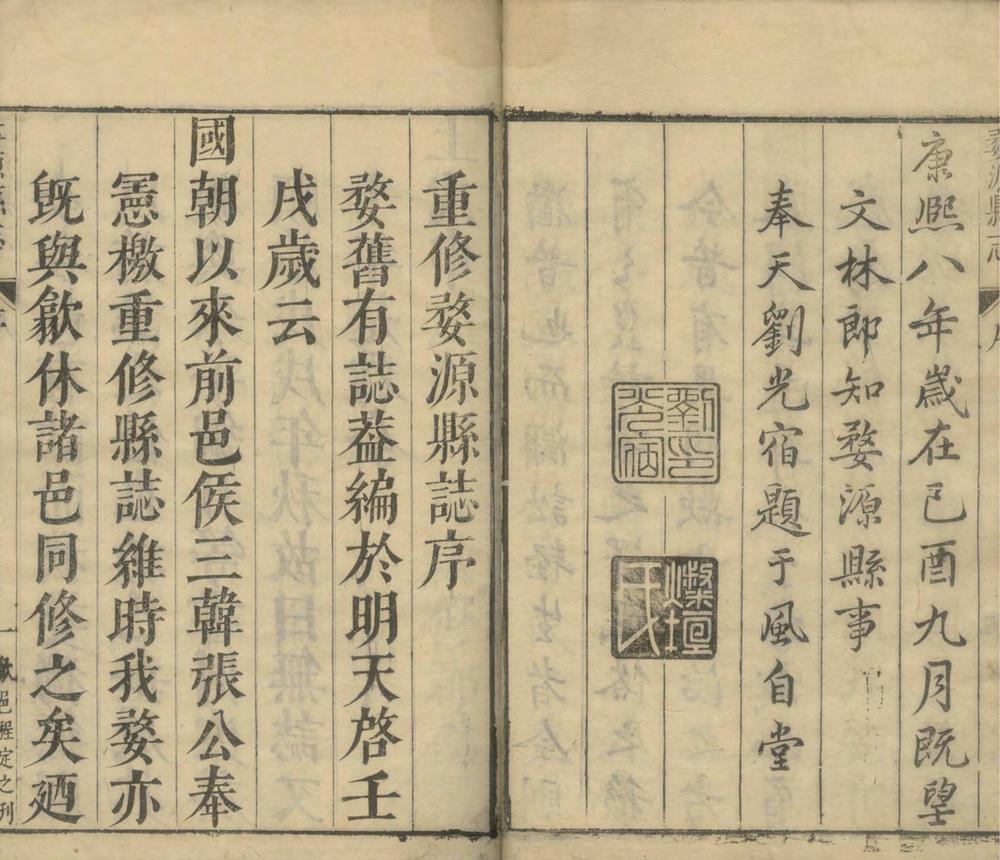 康熙八年歲在己酉九月既望
文林郎知婺源縣事
奉天劉光宿題于風自堂
劉光宿印
燦垣氏
重修婺源縣誌序
婺舊有誌葢編於明天啓壬
戌歲云
國朝以來前邑侯三韓張公奉
憲檄重修縣誌維時我婺亦
既與歙休諸邑同修之矣廼
一
歙邑程定之刊